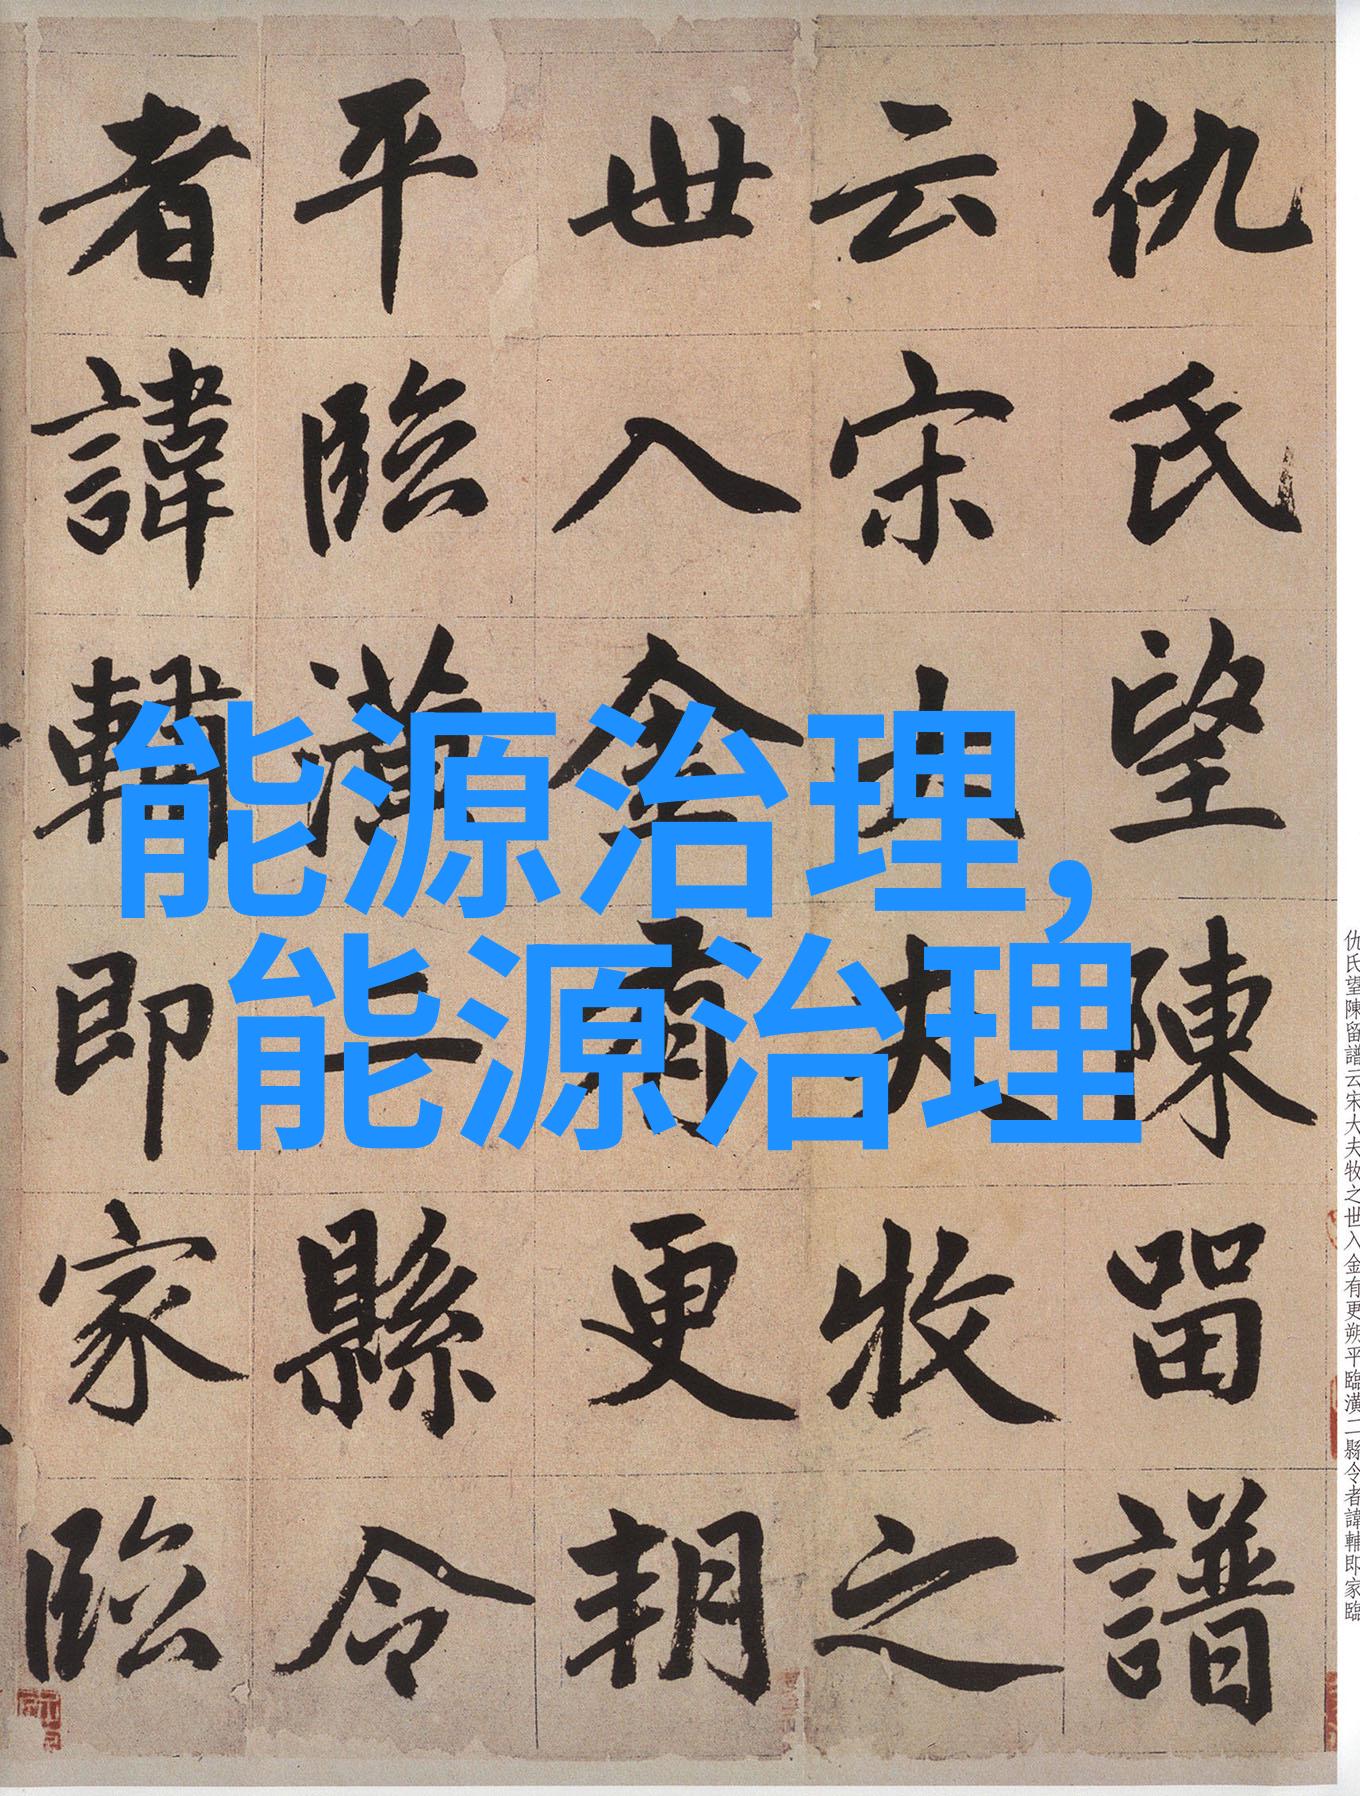 仇氏望陳留譜
云宋大夫牧之
世入金有更朔
平臨潢二縣令
者諱輔即家臨
能源治理,
能源治理
仇氏望陳留譜云宋大夫牧之世入金有更朔平臨潢二縣令者諱輔即家臨